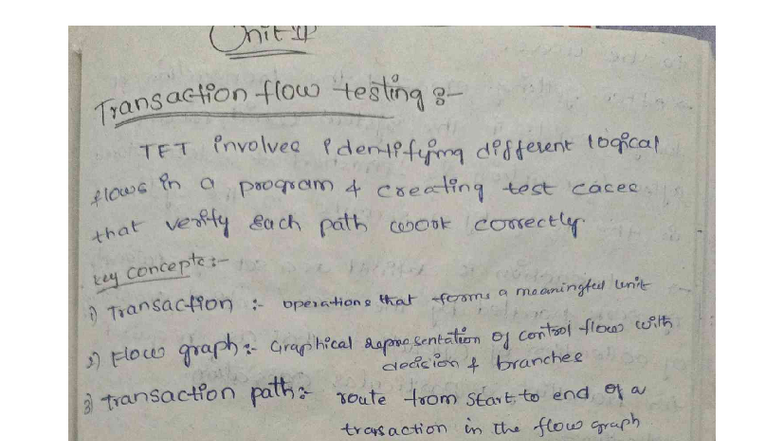 Unit II
Transaction flow testing :-
TFT involves identifying different logical
flows in a program & creating test cases
that verify each path work correctly.
key concepts :-
1) Transaction :- operations that forms a meaningful unit
2) Flow graph :- Graphical representation of control flow with
decision & branches
3) transaction path :- route from start to end of a
transaction in the flow graph